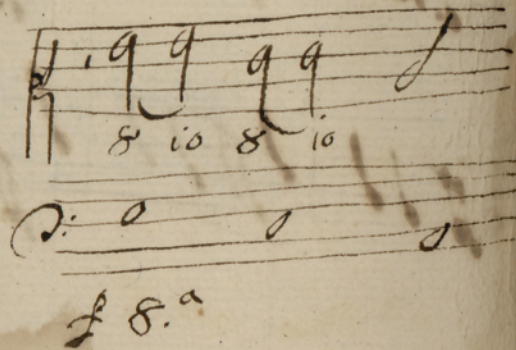 8 10 8 10
f 8.a